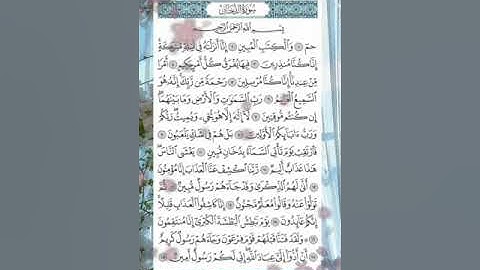 سُورَةُ الدُّخَانِ
بِسْمِ اللَّهِ الرَّحْمَٰنِ الرَّحِيمِ
حمٓ ١ وَالْكِتَٰبِ الْمُبِينِ ٢ إِنَّا أَنزَلْنَٰهُ فِي لَيْلَةٍ مُّبَٰرَكَةٍ
إِنَّا كُنَّا مُنذِرِينَ ٣ فِيهَا يُفْرَقُ كُلُّ أَمْرٍ حَكِيمٍ ٤ أَمْرًا
مِّنْ عِندِنَا إِنَّا كُنَّا مُرْسِلِينَ ٥ رَحْمَةً مِّن رَّبِّكَ إِنَّهُ هُوَ
السَّمِيعُ الْعَلِيمُ ٦ رَبِّ السَّمَٰوَٰتِ وَالْأَرْضِ وَمَا بَيْنَهُمَا
إِن كُنتُم مُّوقِنِينَ ٧ لَا إِلَٰهَ إِلَّا هُوَ يُحْيِۦ وَيُمِيتُ رَبُّكُمْ
وَرَبُّ ءَابَآئِكُمُ الْأَوَّلِينَ ٨ بَلْ هُمْ فِي شَكٍّ يَلْعَبُونَ ٩
فَارْتَقِبْ يَوْمَ تَأْتِي السَّمَآءُ بِدُخَانٍ مُّبِينٍ ١٠ يَغْشَى النَّاسَ
هَٰذَا عَذَابٌ أَلِيمٌ ١١ رَّبَّنَا اكْشِفْ عَنَّا الْعَذَابَ إِنَّا مُؤْمِنُونَ
١٢ أَنَّىٰ لَهُمُ الذِّكْرَىٰ وَقَدْ جَآءَهُمْ رَسُولٌ مُّبِينٌ ١٣ ثُمَّ
تَوَلَّوْا عَنْهُ وَقَالُوا مُعَلَّمٌ مَّجْنُونٌ ١٤ إِنَّا كَاشِفُوا الْعَذَابِ قَلِيلًا
إِنَّكُمْ عَآئِدُونَ ١٥ يَوْمَ نَبْطِشُ الْبَطْشَةَ الْكُبْرَىٰ إِنَّا مُنتَقِمُونَ
١٦ وَلَقَدْ فَتَنَّا قَبْلَهُمْ قَوْمَ فِرْعَوْنَ وَجَآءَهُمْ رَسُولٌ كَرِيمٌ
١٧ أَنْ أَدُّوا إِلَيَّ عِبَادَ اللَّهِ إِنِّي لَكُمْ رَسُولٌ أَمِينٌ ١٨